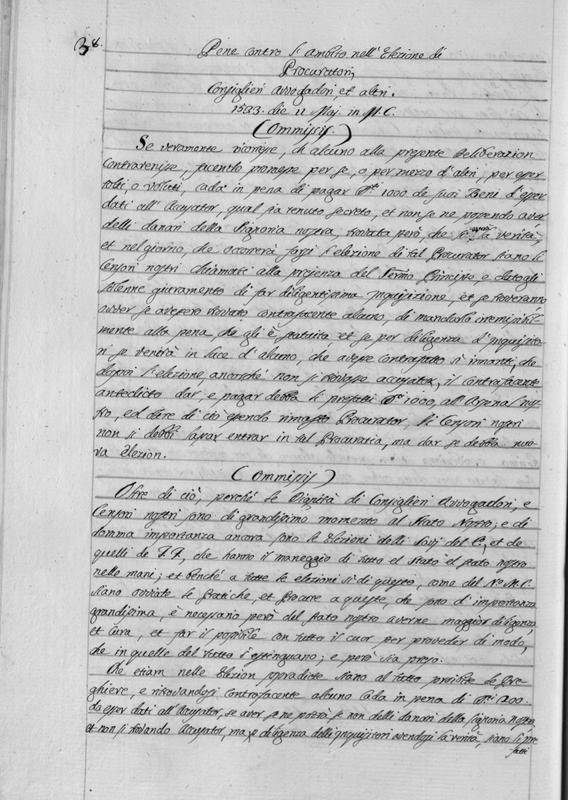 38.
Pene contro l'Ambito nell'Elezione di
Procuratori,
Consiglieri Avvogadori et altri.
1533. die 11 Maj. in M. C.
(Ommissis)
Se veramente da alcuno alla presente deliberation
Contravenisse, facendo per se, o per mezzo d'altri, per esser
tolti, o volesti, cada in pena di pagar D.ti 1000 de suoi Beni d'esser
dati all'Accusator, qual sia tenuto secreto, et non se ne potendo aver
delli danari della Signoria nostra, trovata però, che la verità,
et nel giorno, che occorrerà farsi l'elezione di tal Procurator siano li
Censori nostri chiamati alla presenza del Ser.mo Principe, e datogli
solenne giuramento di far diligentissima Inquisizione, et se troveranno
over se avessero trovato contrafacente alcuno, di mandarlo
mente alla pena, che gli è statuita, et se per diligenza d'Inquisito
ri se venirà in luce d'alcuno, che avesse contrafatto sì innanti, che
dapoi l'elezione, ancorchè non si trovasse accusator, il Contrafacente
antedicto dar, e pagar debba li prefatti D.ti 1000, all'Arsenal nos
tro, ed oltre di ciò essendo rimasto Procurator, li Censori nostri
non si debbi lassar entrar in tal Procuratia, ma dar se debba nuo
va Elezion.
(Ommissis)
Oltre di ciò, perchè le Dignità di Consiglieri Avvogadori, e
Censori nostri sono di grandissimo momento al Stato Nostro; e di
somma importanza ancora sono le Elezioni delli Savj del C.o, et de
quelli de T. F., che hanno il maneggio di tutto el Stato el stato nostro
nelle mani; et benchè a tutte le elezioni sì di questo, come del M. C.
siano ovviate le Pratiche, et Procure a queste, che sono d'importanza
grandissima, è necessario però del stato nostro averne maggior diligenza,
et cura, et far il possibile con tutto il cuor per proveder di modo,
che in quelle del tutto s'estinguano; e però sia preso.
Che etiam nelle Elezion sopradicte siano al tutto proibite le Pre
ghiere, e ritrovandosi Contrafacente alcuno cada in pena di D.ti 200.
da esser dati all'Accusator, se aver se ne potrà se non delli danari della Signoria nostra,
et non si trovando Accusator, ma per diligenza dell'Inquisitori avendosi la verità, siano li pre
fatti